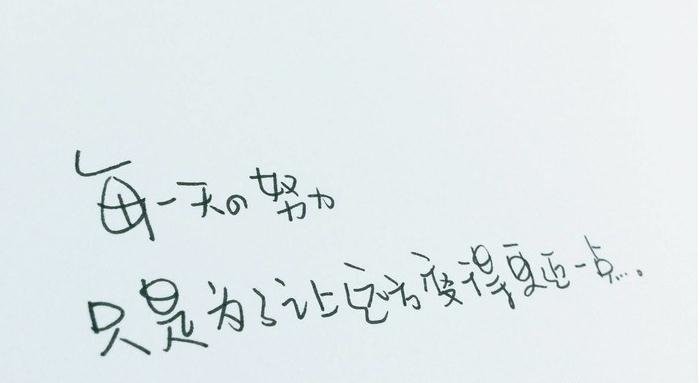 每一天の努力
只是为了让远方变得更近一点....